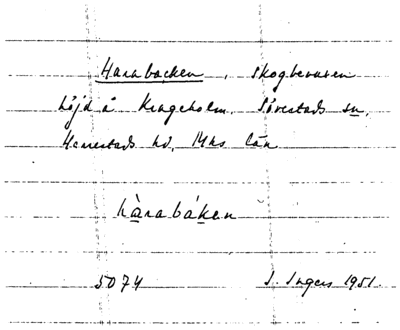 Harabacken, skogbevuxen
höjd å Kngeholm. Sövestads sn,
Herrestads hd, Mhs län
hàrabáken
5074 I. Ingers 1951.